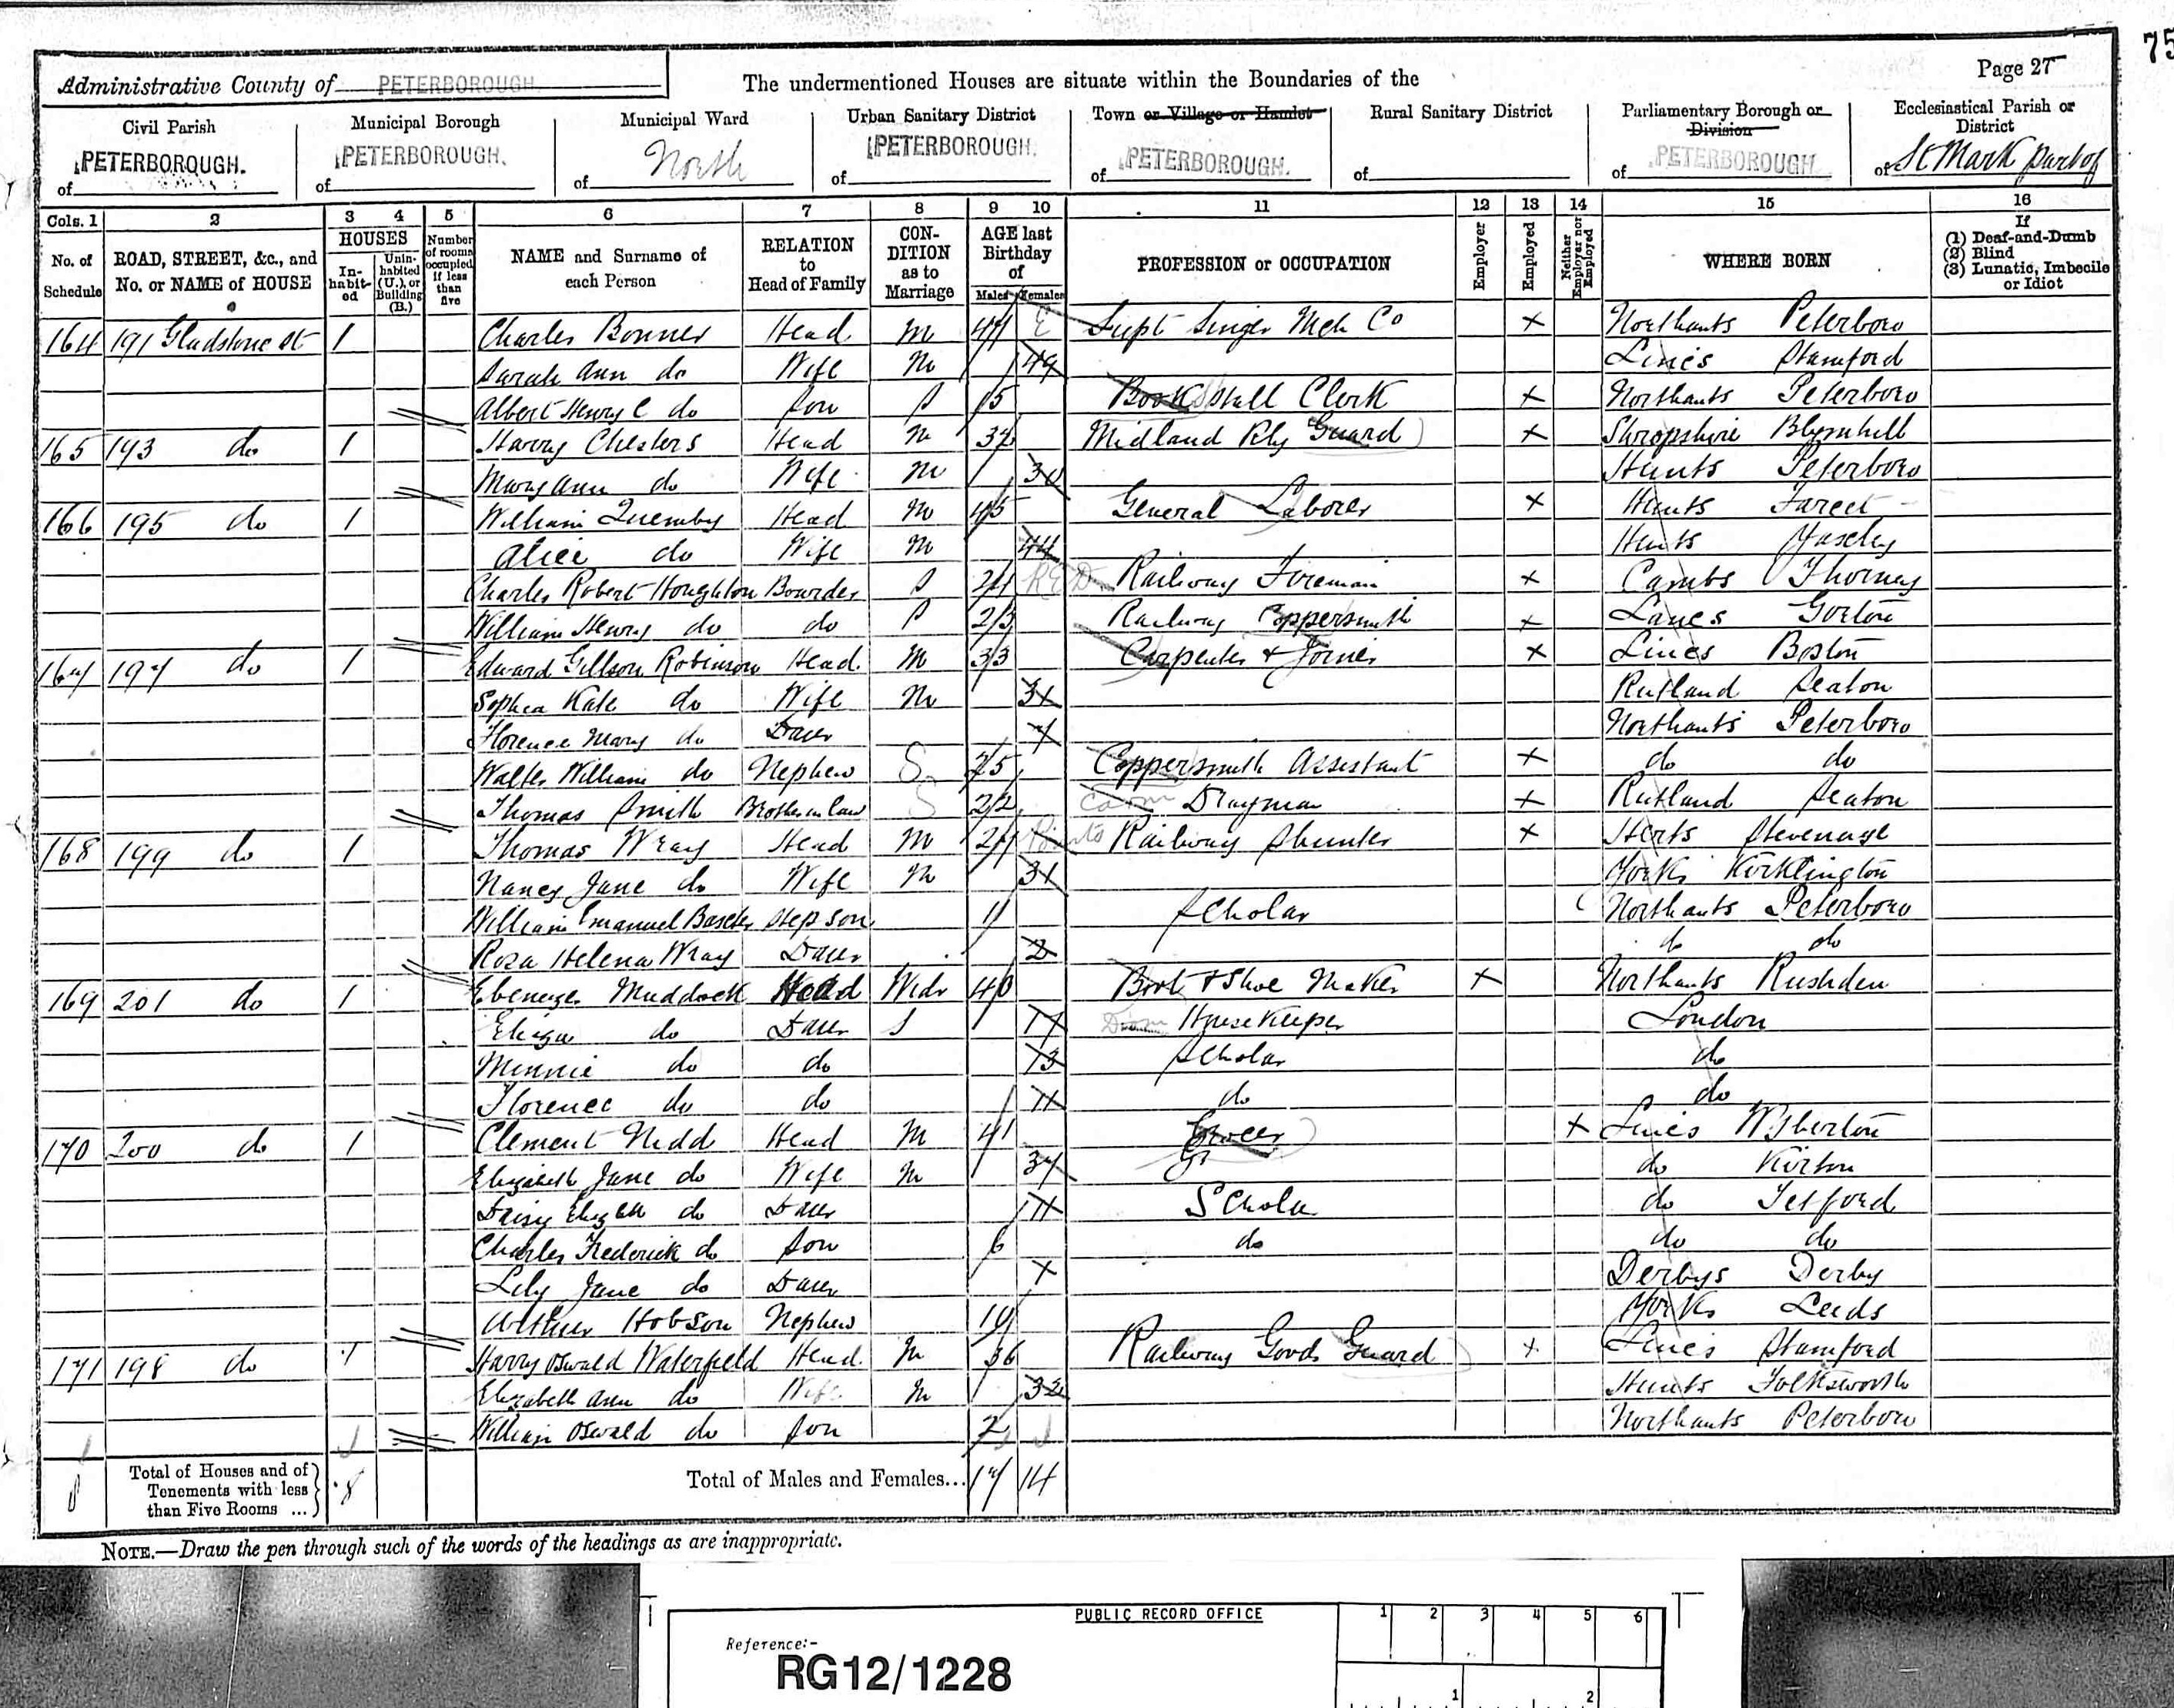 75
Administrative County of PETERBOROUGH. The undermentioned Houses are situate within the Boundaries of the Page 27
Civil Parish Municipal Borough Municipal Ward Urban Sanitary District Town or Village or Hamlet Rural Sanitary District Parliamentary Borough or Division Ecclesiastical Parish or District
of PETERBOROUGH. of PETERBOROUGH. of North of PETERBOROUGH. of PETERBOROUGH. of of PETERBOROUGH of St Mark part of
Cols. 1 2 3 4 5 6 7 8 9 10 11 12 13 14 15 16
No. of Schedule ROAD, STREET, &c., and No. or NAME of HOUSE HOUSES Inhabited Uninhabited (U.), or Building (B.) Number of rooms occupied if less than five NAME and Surname of each Person RELATION to Head of Family CONDITION as to Marriage AGE last Birthday of Males Females PROFESSION or OCCUPATION Employer Employed Neither Employer nor Employed WHERE BORN If (1) Deaf-and-Dumb (2) Blind (3) Lunatic, Imbecile or Idiot
164 191 Gladstone St 1 Charles Bonner Head M 47 Supt Singer Mch Co X Northants Peterboro
Sarah Ann do Wife M 49 Lincs Stamford
Albert Henry C do Son S 15 Book Stall Clerk X Northants Peterboro
165 193 do 1 Harry Chesters Head M 37 Midland Rly Guard X Shropshire Blymhill
Mary Ann do Wife M 30 Hunts Peterboro
166 195 do 1 William Quemby Head M 45 General Laborer X Hunts Farcet
Alice do Wife M 44 Hunts Yaxley
Charles Robert Houghton Boarder S 27 Railway Fireman X Cambs Thorney
William Henry do do S 23 Railway Coppersmith X Lancs Gorton
167 197 do 1 Edward Gillson Robinson Head M 33 Carpenter & Joiner X Lincs Boston
Sophia Kate do Wife M 31 Rutland Seaton
Florence Mary do Daur 7 Northants Peterboro
Walter William do Nephew S 25 Coppersmith Assistant X do do
Thomas Smith Brother in law S 22 Drayman X Rutland Seaton
168 199 do 1 Thomas Wray Head M 27 Railway Shunter X Herts Stevenage
Nancy Jane do Wife M 31 Yorks Kirklington
William Emanuel Step son 9 Scholar Northants Peterboro
Rosa Helena Wray Daur 2 do do
169 201 do 1 Ebenezer Muddock Head Widr 40 Boot & Shoe Maker X Northants Rushden
Eliza do Daur S 17 Dom HouseKeeper London
Minnie do do 13 Scholar do
Florence do do 11 do do
170 200 do 1 Clement Nidd Head M 41 Grocer X Lincs Wyberton
Elizabeth Jane do Wife M 37 do Kirton
Daisy Elizth do Daur 11 Scholar do Tetford
Charles Frederick do Son 6 do do do
Lily Jane do Daur Derbys Derby
Arthur Hobson Nephew 19 Yorks Leeds
171 198 do 1 Harry Oswald Waterfield Head M 36 Railway Goods Guard X Lincs Stamford
Elizabeth Ann do Wife M 32 Hunts Folksworth
William Oswald do Son 2 Northants Peterboro
8 Total of Houses and of Tenements with less than Five Rooms ... 8 Total of Males and Females... 17 14
NOTE.—Draw the pen through such of the words of the headings as are inappropriate.
PUBLIC RECORD OFFICE 1 2 3 4 5 6
Reference:-
RG12/1228
1 2